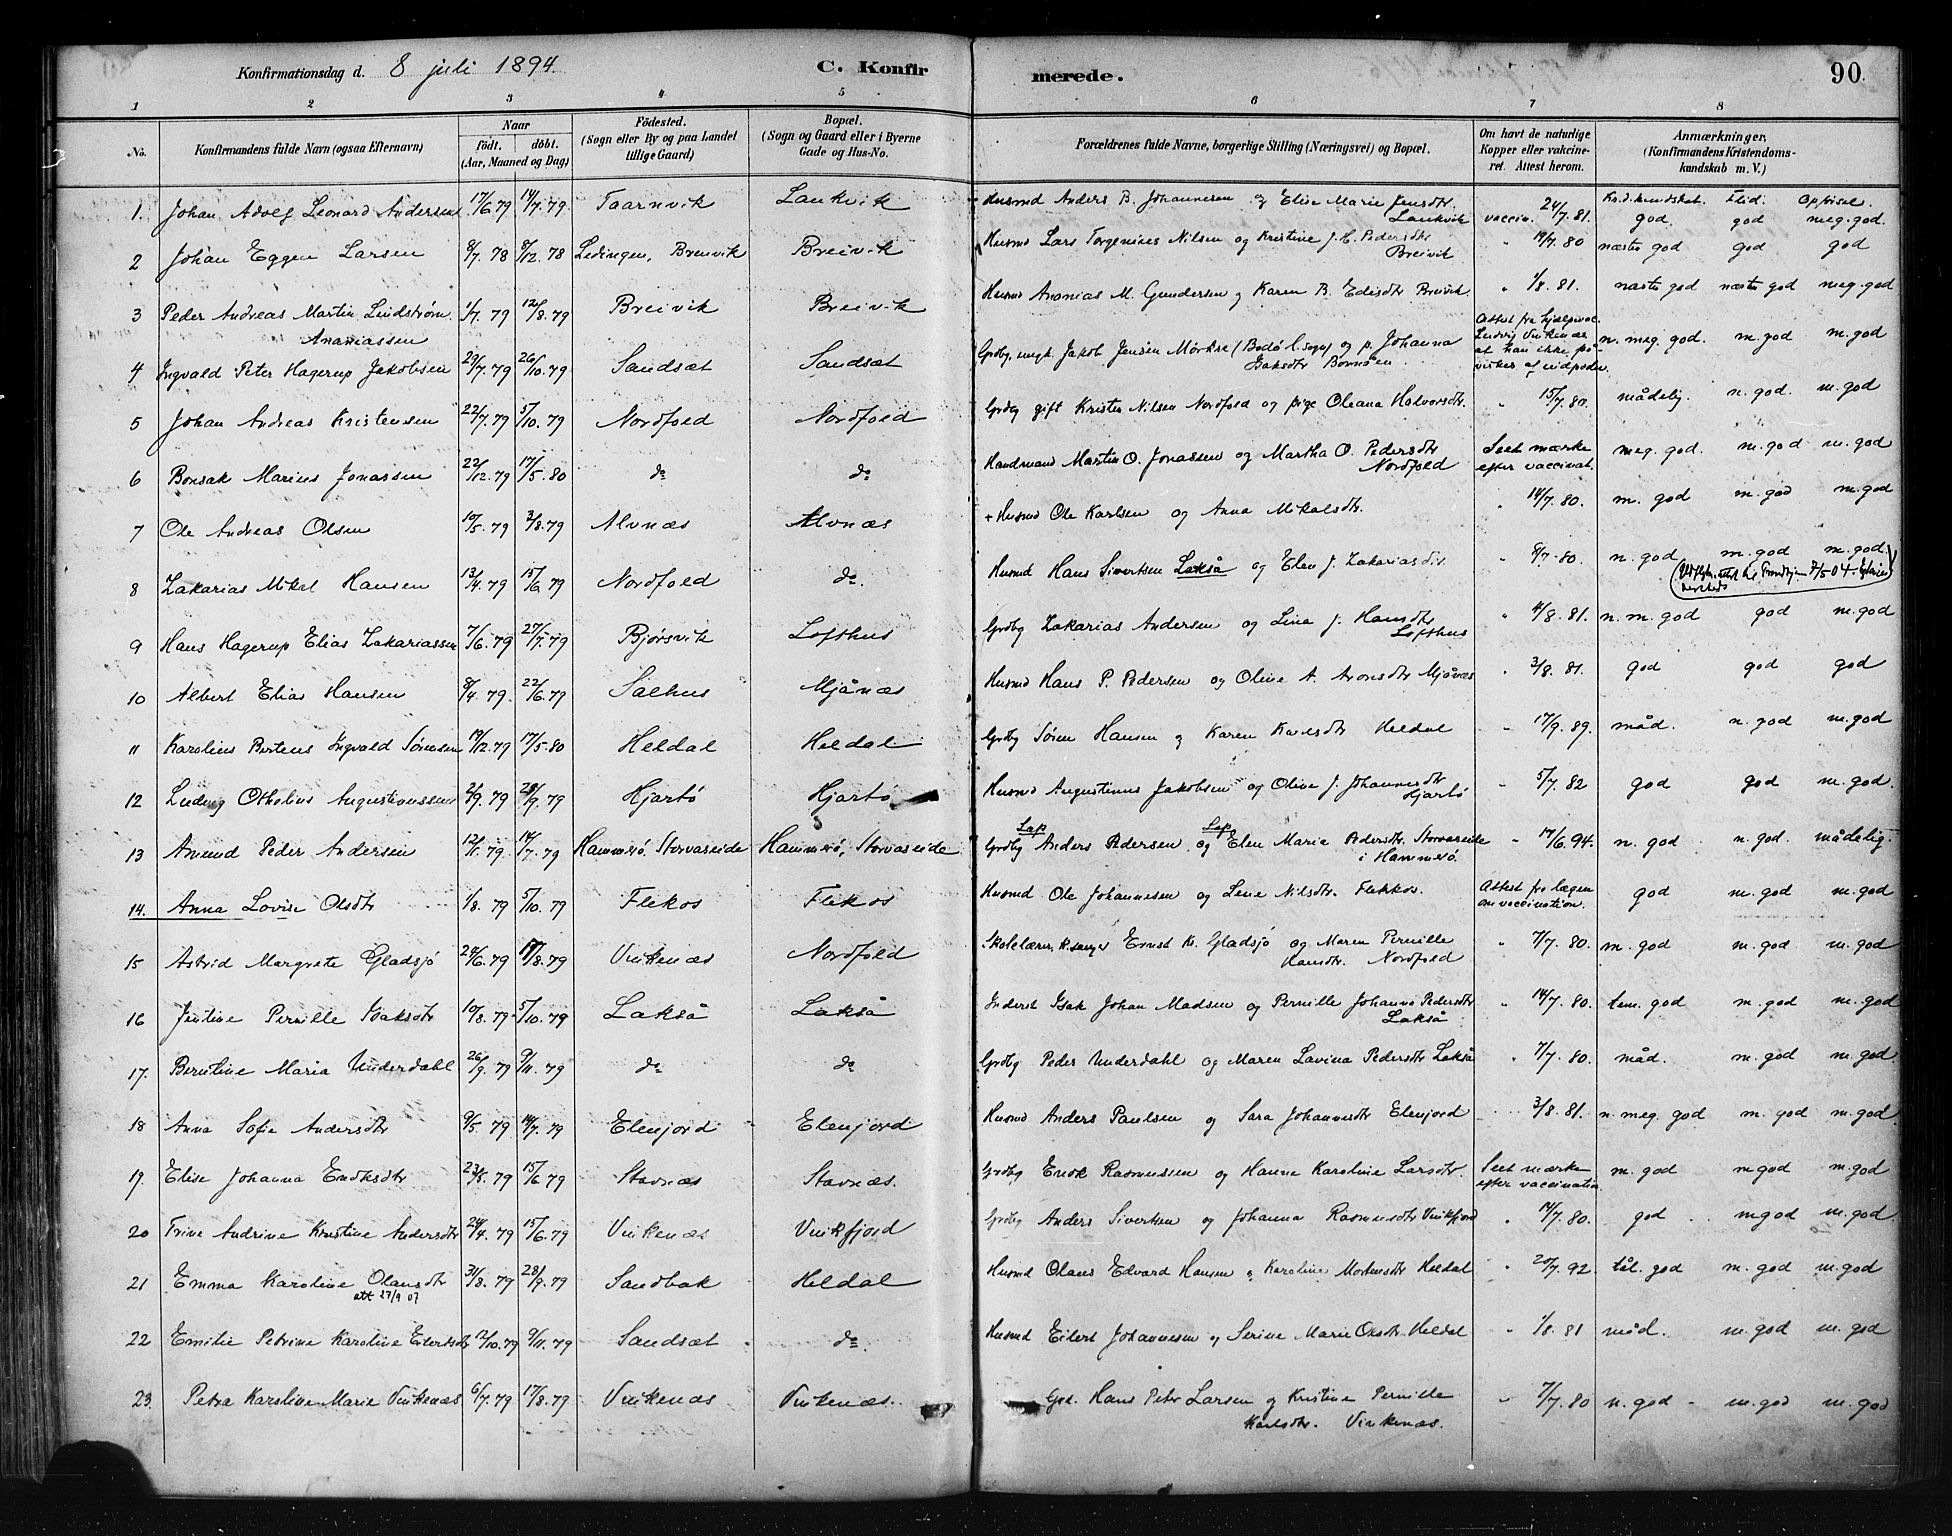 Konfirmationsdag d. 8 juli 1894. C. Konfirmerede. 90.
1 2 3 4 5 6 7 8
No. Konfirmandens fulde Navn (ogsaa Efternavn) Naar födt. döbt. (Aar, Maaned og Dag) Födested. (Sogn eller By og paa Landet tillige Gaard) Bopæl. (Sogn og Gaard eller i Byerne Gade og Hus-No. Forældrenes fulde Navne, borgerlige Stilling (Næringsvei) og Bopæl. Om havt de naturlige Kopper eller vakcineret. Attest herom. Anmærkninger. (Konfirmandens Kristendomskundskab m. V.)
Kr.d.kundskab. Flid. Opførsel.
1. Johan Adolf Leonard Andersen 17/6 79 14/7. 79. Taarnvik Lankvik Husmd Anders B. Johannesen og Elise Marie Jensdtr Lankvik vaccin. 24/7. 81. god god meg. god.
2 Johan Eggen Larsen 8/7 78 8/12. 78 Lødingen, Breivik Breivik Husmd Lars Torgenines Nilsen og Kristine J. C. Pedersdtr Breivik " 14/7. 80 næsten god god god
3 Peder Andreas Martin Lindstrøm Ananiassen 1/7. 79 12/8. 79 Breivik Breivik Husmd Ananias M. Gundersen og Karen B. Edisdtr Breivik " 1/8. 81. næsten god næsten god meg. god
4 Ingvald Peter Hagerup Jakobsen 29/7. 79 26/10. 79 Sandsæt Sandsæt Grdbg. ungk. Jakob Jensen Mørkse (Bodø l. sogn) og p. Johanna Isaksdtr Bonnøen. Attest fra hjælpevac. Ludvig Vinkenæs at han ikke påvirkes af indpoden. n. meg. god. m. god m. god
5 Johan Andreas Kristensen 22/7. 79 5/10. 79 Nordfold Nordfold Grdbg gift Kristen Nilsen Nordfold og pige Oleana Halvorsdtr. " 15/7. 80. mådelig. n. god. m. god
6 Bonsak Marius Jonassen 22/12. 79 17/5. 80 do do Handmand Martin O. Jonassen og Martha O. Pedersdtr Nordfold Seet mærke efter vaccinat. meg. god. m. god m. god
7 Ole Andreas Olsen 10/5. 79 3/8. 79 Alvnæs Alvnæs + Husmd Ole Karlsen og Anna Mikalsdtr. " 14/7. 80. m. god m. god m. god
8 Zakarias Mikal Hansen 13/4. 79 15/6. 79 Nordfold do. Husmd Hans Sivertsen Lakså og Elen J. Zakariasdtr " 8/7. 80 n. god m. god m. god
9 Hans Hagerup Elias Zakariassen 7/6. 79 27/7. 79 Bjørsvik Lofthus Grdbg Zakarias Andersen og Lina J. Hansdtr Lofthus " 4/8. 81. n. m. god god m. god
10 Albert Elias Hansen 8/4. 79 22/6. 79 Sælhus Mjånæs Husmd Hans P. Pedersen og Oline A. Aronsdtr Mjånæs " 3/8. 81. god god god
11 Karolius Bertens Ingvald Sørensen 19/12. 79 17/5. 80 Heldal Heldal Grdbg Søren Hansen og Karen Karlsdtr Heldal " 17/9. 89. måd. n. god m. god
12 Ludvig Othelius Augustinussen 2/9. 79 28/9. 79 Hjartø Hjartø Husmd Augustinus Jakobsen og Oline J. Johannesdtr Hjartø " 5/7. 82 god god m. god.
13 Amund Peder Andersen 12/1. 79. 14/7. 79 Hammerø, Storvaseide Hammerø, Storvaseide Lap Grdbg Anders Pedersen og Lap Elen Maria Pedersdtr. Storvaseide i Hammerø. " 17/6. 94. n. god n. god. mådelig.
14. Anna Lovise Olsdtr 1/8. 79 5/10. 79 Flekos Flekos Husmd Ole Johannesen og Lene Nilsdtr. Flekkos. Attest fra lægen om vaccination. god m. god m. god
15 Astrid Margrete Gladsjø 29/6. 79 17/8. 79 Vinkenæs Nordfold Skolelærer, k. sanger Ernst K. Gladsjø og Maren Pernille Hansdtr. Nordfold " 7/7. 80. m. god m. god. m. god
16 Justine Pernille Isaksdtr 10/8. 79. 5/10. 79 Lakså Lakså Inderst Isak Johan Madsen og Pernille Johanna Pedersdtr Lakså. " 14/7. 80. tem. god m. god m. god
17. Berntine Maria Underdahl 26/9. 79 9/11. 79 do do Grdbg Peder Underdahl og Maren Lavina Pedersdtr Lakså " 7/7. 80. måd. m. god m. god.
18 Anna Sofie Andersdtr 9/5. 79 14/7. 79 Elenjord Elenjord Husmd Anders Paulsen og Sara Johannesdtr Elenjord 3/8. 81. n. meg. god m. god m. god
19. Elise Johanna Enoksdtr 23/5. 79 15/6. 79 Stavnæs Stavnæs. Grdbg Enok Rasmussen og Hanna Karoline Larsdtr. Seet mærke efter vaccination m. god m god m. god
20 Trine Andrine Kristine Andersdtr 24/4. 79 15/6. 79 Vinkenæs Vinkfjord Grdbg Anders Sivertsen og Johanna Rasmusdtr Vinkfjord " 14/7. 80. god m god m. god.
21 Emma Karoline Olausdtr att 27/9 07 31/8. 79 28/9. 79 Sandbak Heldal Husmd Olaus Edvard Hansen og Karoline Mortensdtr Heldal " 20/7. 92. tål. god m. god m. god.
22 Emilie Petrine Karoline Eilertsdtr 12/10. 79 9/11. 79 Sandsæt do. Husmd Eilert Johannesen og Serine Marie Olsdtr Heldal " 1/8. 81 måd. m. god m. god
23. Petra Karoline Marie Vinkenæs 6/7. 79 17/8. 79 Vinkenæs Vinkenæs. Gbr. Hans Peter Larsen og Kristine Pernille Karlsdtr. Vinkenæs. " 7/7. 80 n. god m. god m. god